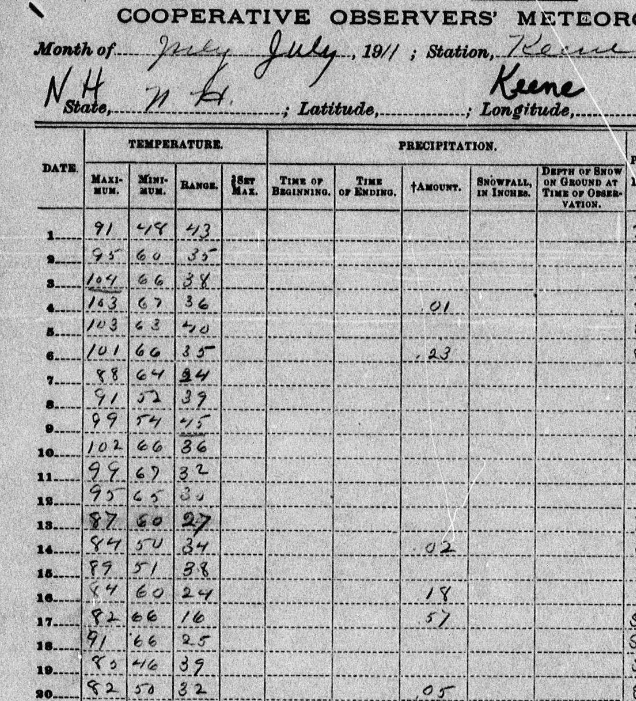 COOPERATIVE OBSERVERS' METEORO
Month of July July, 1911; Station, Keene
N H Keene
State, N. H.; Latitude, ; Longitude,
TEMPERATURE. PRECIPITATION.
DATE. MAXI-MUM. MINI-MUM. RANGE. ‡SET MAX. TIME OF BEGINNING. TIME OF ENDING. †AMOUNT. SNOWFALL, IN INCHES. DEPTH OF SNOW ON GROUND AT TIME OF OBSER-VATION.
1 91 48 43
2 95 60 35
3 104 66 38
4 103 67 36 01
5 103 63 40
6 101 66 35 .23
7 88 64 24
8 91 52 39
9 99 54 45
10 102 66 36
11 99 67 32
12 95 65 30
13 87 60 27
14 84 50 34 .02
15 89 51 38
16 84 60 24 18
17 82 66 16 57
18 91 66 25
19 85 46 39
20 82 50 32 .05